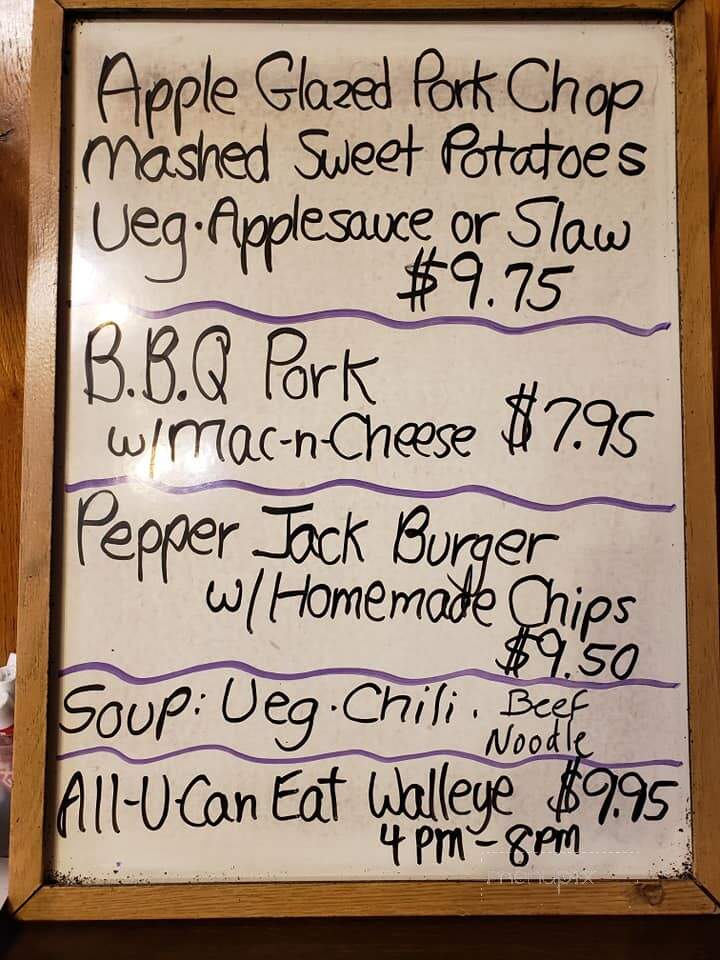 Apple Glazed Pork Chop
Mashed Sweet Potatoes
Veg·Applesauce or Slaw
$9.75
B.B.Q Pork
w/Mac-n-Cheese $7.95
Pepper Jack Burger
w/Homemade Chips
$9.50
Soup: Veg·Chili. Beef
Noodle
All-U-Can Eat Walleye $9.95
4pm-8pm
menupix